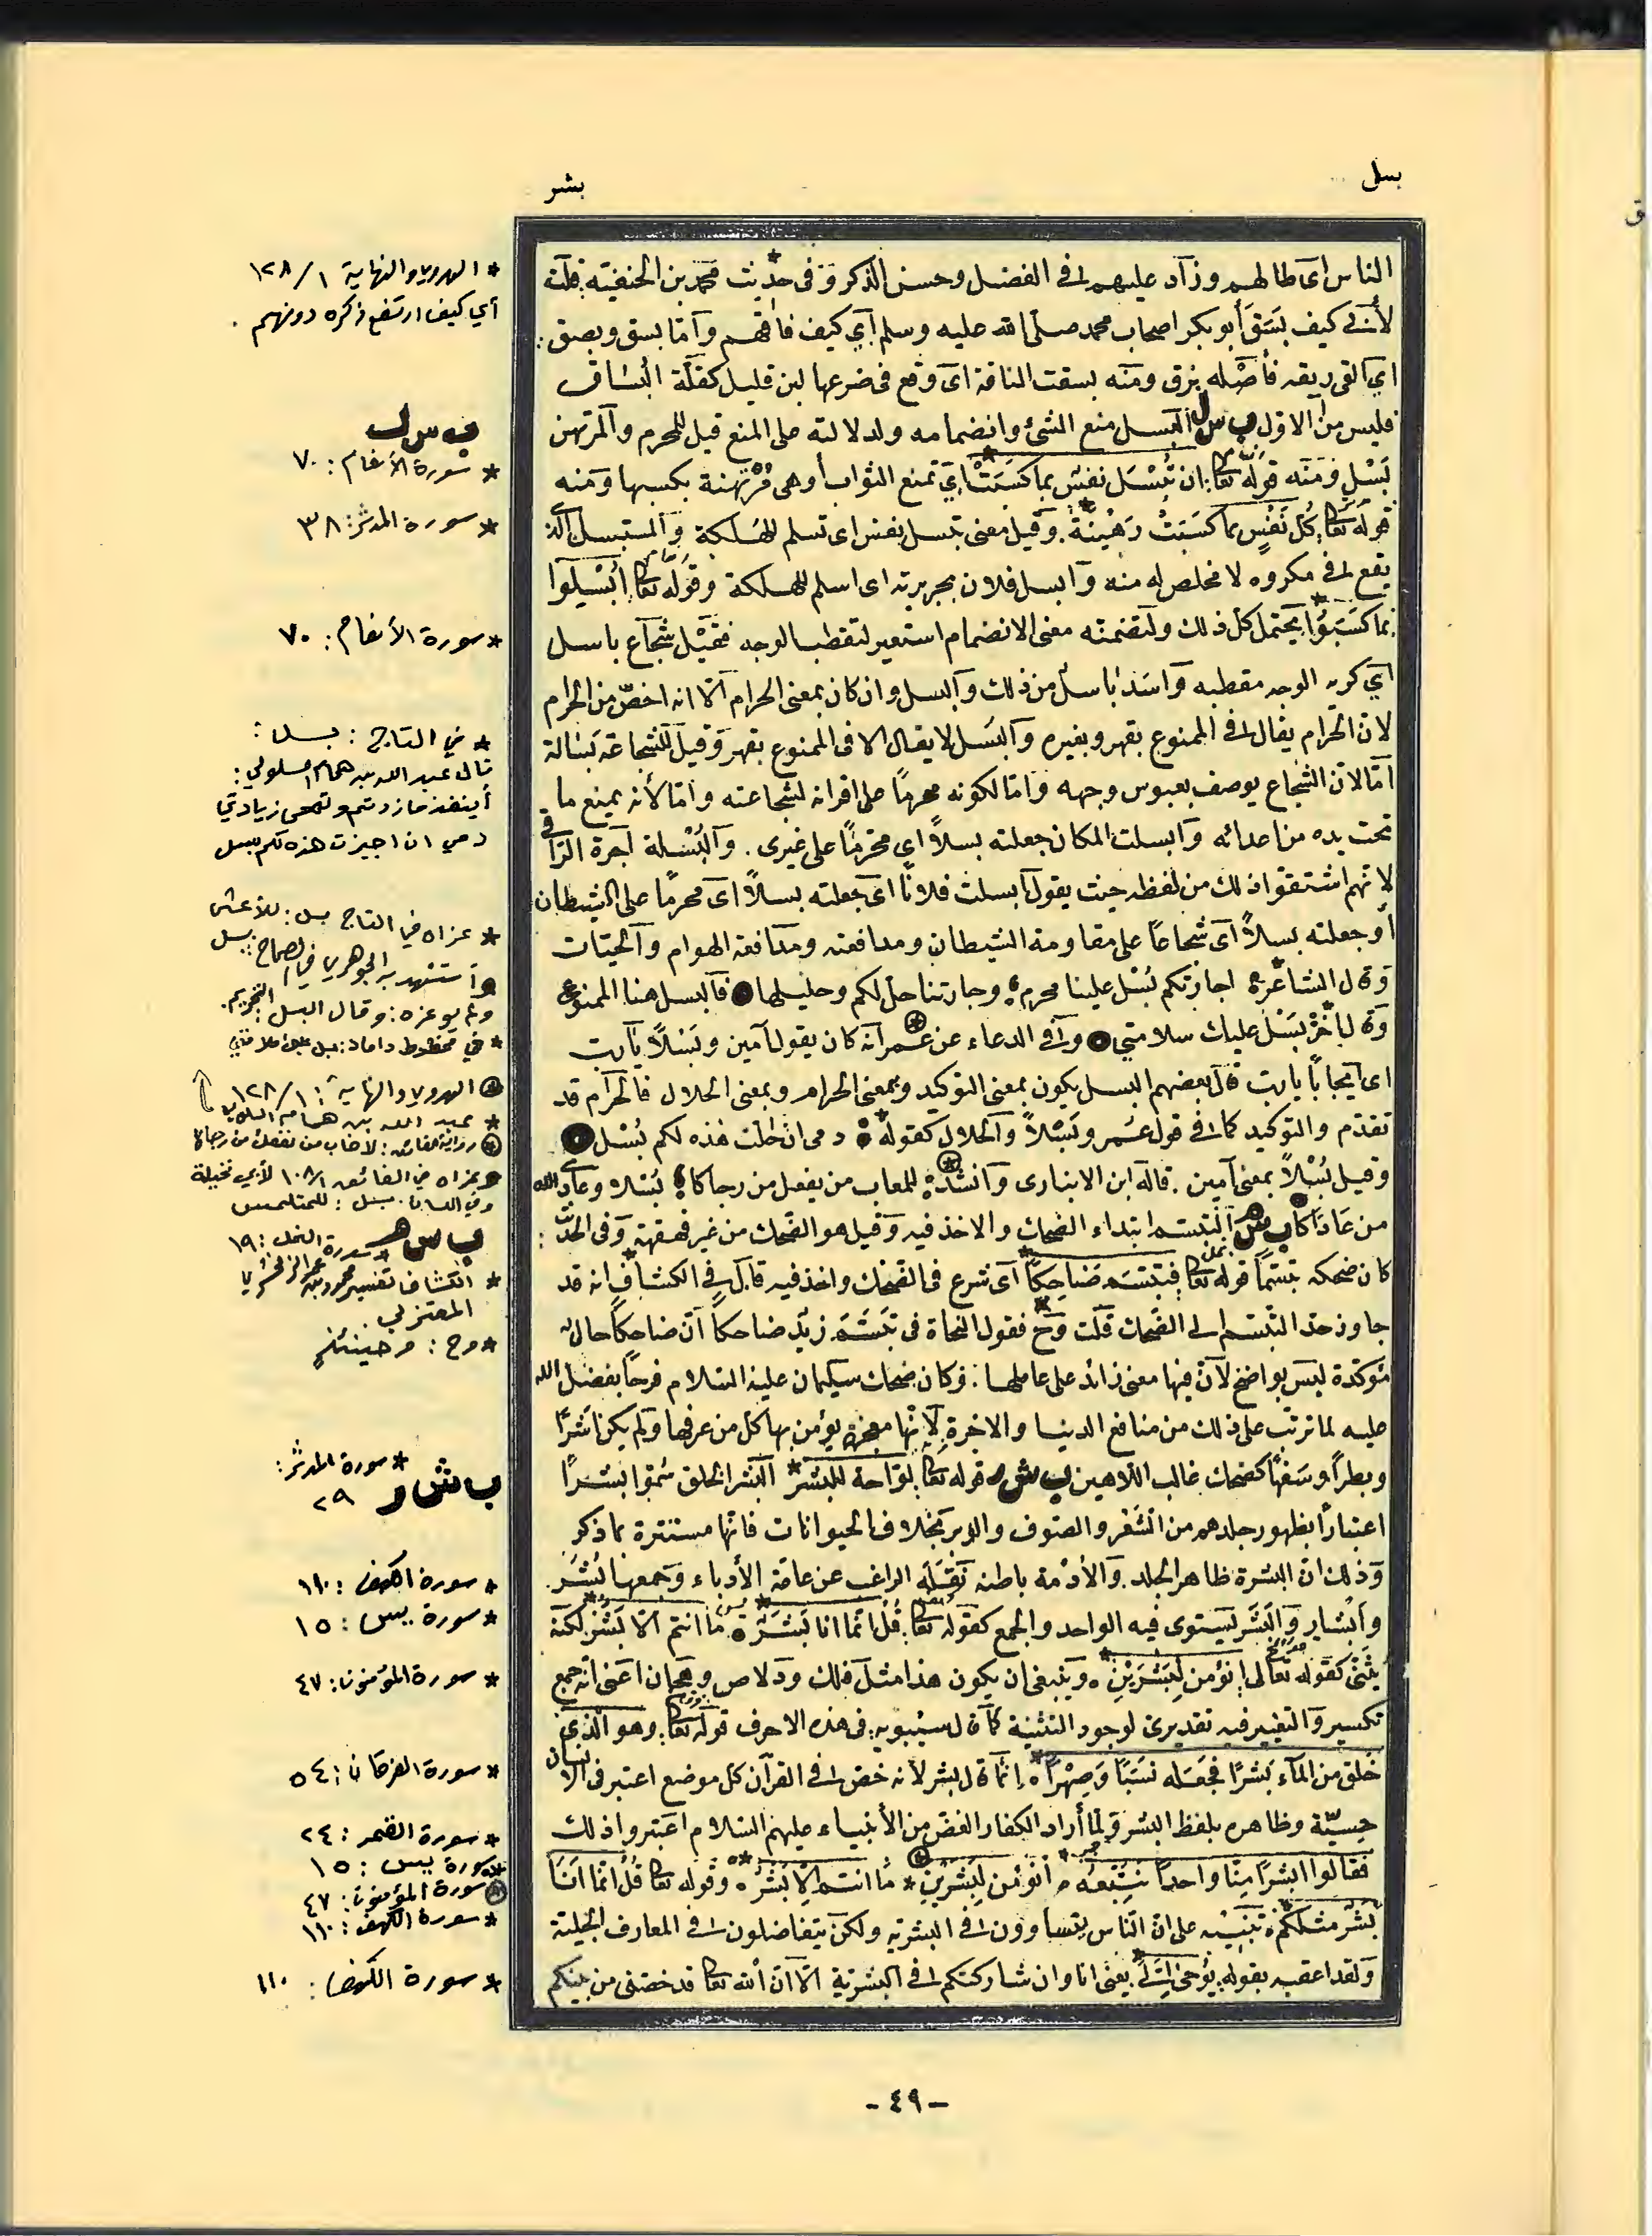 بسل
بشر
الناس اى طالهم وزاد عليهم فى الفضل وحسن الذكر وفى حديث محمد بن الحنفية قلت
لأبى كيف بسق أبو بكر اصحاب محمد صلى الله عليه وسلم أي كيف فاقهم وأما بسق وبصق
اي القى ريقه فأصله بزق ومنه بسقت الناقة اى وقع فى ضرعها لبن قليل كقلة البساق
فليس من الاول ب س ل البسل منع الشئ وانضمامه ولدلالته على المنع قيل للمحرم والمرتهن
بسل ومنه قوله تعالى ان تبسل نفس بما كسبت اي تمنع الثواب أو هى مرتهنة بكسبها ومنه
قوله تعالى كل نفس بما كسبت رهينة . وقيل معنى تبسل نفس اى تسلم للهلكة والمستبسل الذى
يقع فى مكروه لا مخلص له منه وابسل فلان بجريرته اى اسلم للهلكة وقوله تعالى أبسلوا
بما كسبوا يحتمل كل ذلك ولتضمنه معنى الانضمام استعير لتقطب الوجه فقيل شجاع باسل
اي كريه الوجه مقطبه واسد باسل من ذلك والبسل وان كان بمعنى الحرام الا انه اخص من الحرام
لان الحرام يقال فى الممنوع بقهر وبغيره والبسل لا يقال الا فى الممنوع بقهر وقيل للشجاعة بسالة
اما لان الشجاع يوصف بعبوس وجهه واما لكونه محرما على اقرانه لشجاعته واما لأنه يمنع ما
تحت يده من اعدائه وابسلت المكان جعلته بسلا اي محرما على غيرى . والبسلة اجرة الراقى
لانهم اشتقوا ذلك من لفظه حيث يقول أبسلت فلانا اى جعلته بسلا اى محرما على الشيطان
أو جعلته بسلا اى شجاعا على مقاومة الشيطان ومدافعته ومدافعة الهوام والحيات
وقال الشاعر اجارتكم بسل علينا محرم وجارتنا حل لكم وحليلها فالبسل هنا الممنوع
وقال آخر بسل عليك سلامتي وفى الدعاء عن عمر انه كان يقول آمين وبسلا يا رب
اى ايجابا يا رب قال بعضهم البسل يكون بمعنى التوكيد وبمعنى الحرام وبمعنى الحلال فالحرام قد
تقدم والتوكيد كما فى قول عمر وبسلا والحلال كقوله دمى ان احلت هذه لكم بسل
وقيل بسلا بمعنى آمين . قاله ابن الانبارى وانشد للمعاب من يفعل من رجاكا بسلا وعادى الله
من عاداكا ب س م التبسم ابتداء الضحك والاخذ فيه وقيل هو الضحك من غير قهقهة وفى الحديث
كان ضحكه تبسما قوله تعالى فتبسم ضاحكا اى شرع فى الضحك واخذ فيه قال فى الكشاف انه قد
جاوز حد التبسم الى الضحك قلت وح فقول النحاة فى تبسم زيد ضاحكا ان ضاحكا حال
مؤكدة ليس بواضح لان فيها معنى زائد على عاملها . وكان ضحك سليمان عليه السلام فرحا بفضل الله
عليه لما ترتب على ذلك من منافع الدنيا والاخرة لانها معجزة يؤمن بها كل من عرفها ولم يكن اشرا
وبطرا وسفها كضحك غالب اللاهين ب ش ر قوله تعالى لواحة للبشر البشر الخلق سموا بشرا
اعتبارا بظهور جلدهم من الشعر والصوف والوبر بخلاف الحيوانات فانها مستترة بما ذكر
وذلك ان البشرة ظاهر الجلد . والأدمة باطنه نقله الراغب عن عامة الأدباء وجمعها بشر
وابشار والبشر يستوى فيه الواحد والجمع كقوله تعالى قل انما انا بشر ما انتم الا بشر لكنه
يثنى كقوله تعالى أنؤمن لبشرين . وينبغى ان يكون هذا مثل فلك ودلاص وهجان اعنى انه جمع
تكسير والتغيير فيه تقديرى لوجود التثنية كما قال سيبويه . فى هذه الاحرف قوله تعالى وهو الذي
خلق من الماء بشرا فجعله نسبا وصهرا . انما قال بشر لأنه خص فى القرآن كل موضع اعتبر فى الانسان
حسيته وظاهره بلفظ البشر ولما أراد الكفار الغض من الأنبياء عليهم السلام اعتبروا ذلك
فقالوا ابشرا منا واحدا نتبعه . أنؤمن لبشرين * ما انتم الا بشر . وقوله تعالى قل انما انا
بشر مثلكم . تنبيه على ان الناس يتساوون فى البشرية ولكن يتفاضلون فى المعارف الجليلة
ولقد اعقبه بقوله يوحى الي يعنى انا وان شاركتكم فى البشرية الا ان الله تعالى قد خصنى من بينكم
* الهروي والنهاية ١/ ١٢٨
أي كيف ارتفع ذكره دونهم .
ب س ل
* سورة الأنعام : ٧٠
* سورة المدثر : ٣٨
* سورة الأنعام : ٧٠
* في التاج : بسل :
قال عبد الله بن همام السلولي :
أينفذ ما زدتم وتمحى زيادتي
دمي ان اجيزت هذه لكم بسل
* عزاه في التاج بسل : للأعشى
واستشهد به الجوهري في الصحاح : بسل
ولم يعزه : وقال البسل : التحريم .
* الهروي والنهاية : ١/ ١٢٨
* عبد الله بن همام السلولي
وفي اللسان . بسل : للمتلمس
ب س م
* سورة النمل : ١٩
* الكشاف تفسير محمود بن عمر الزمخشري
المعتزلي .
* وح : وحينئذٍ
ب ش ر
* سورة المدثر :
٢٩
* سورة الكهف : ١١٠
* سورة يس : ١٥
* سورة المؤمنون : ٤٧
* سورة الفرقان : ٥٤
* سورة القمر : ٢٤
* سورة يس : ١٥
سورة المؤمنون : ٤٧
* سورة الكهف : ١١٠
* سورة الكهف : ١١٠
- ٤٩ -